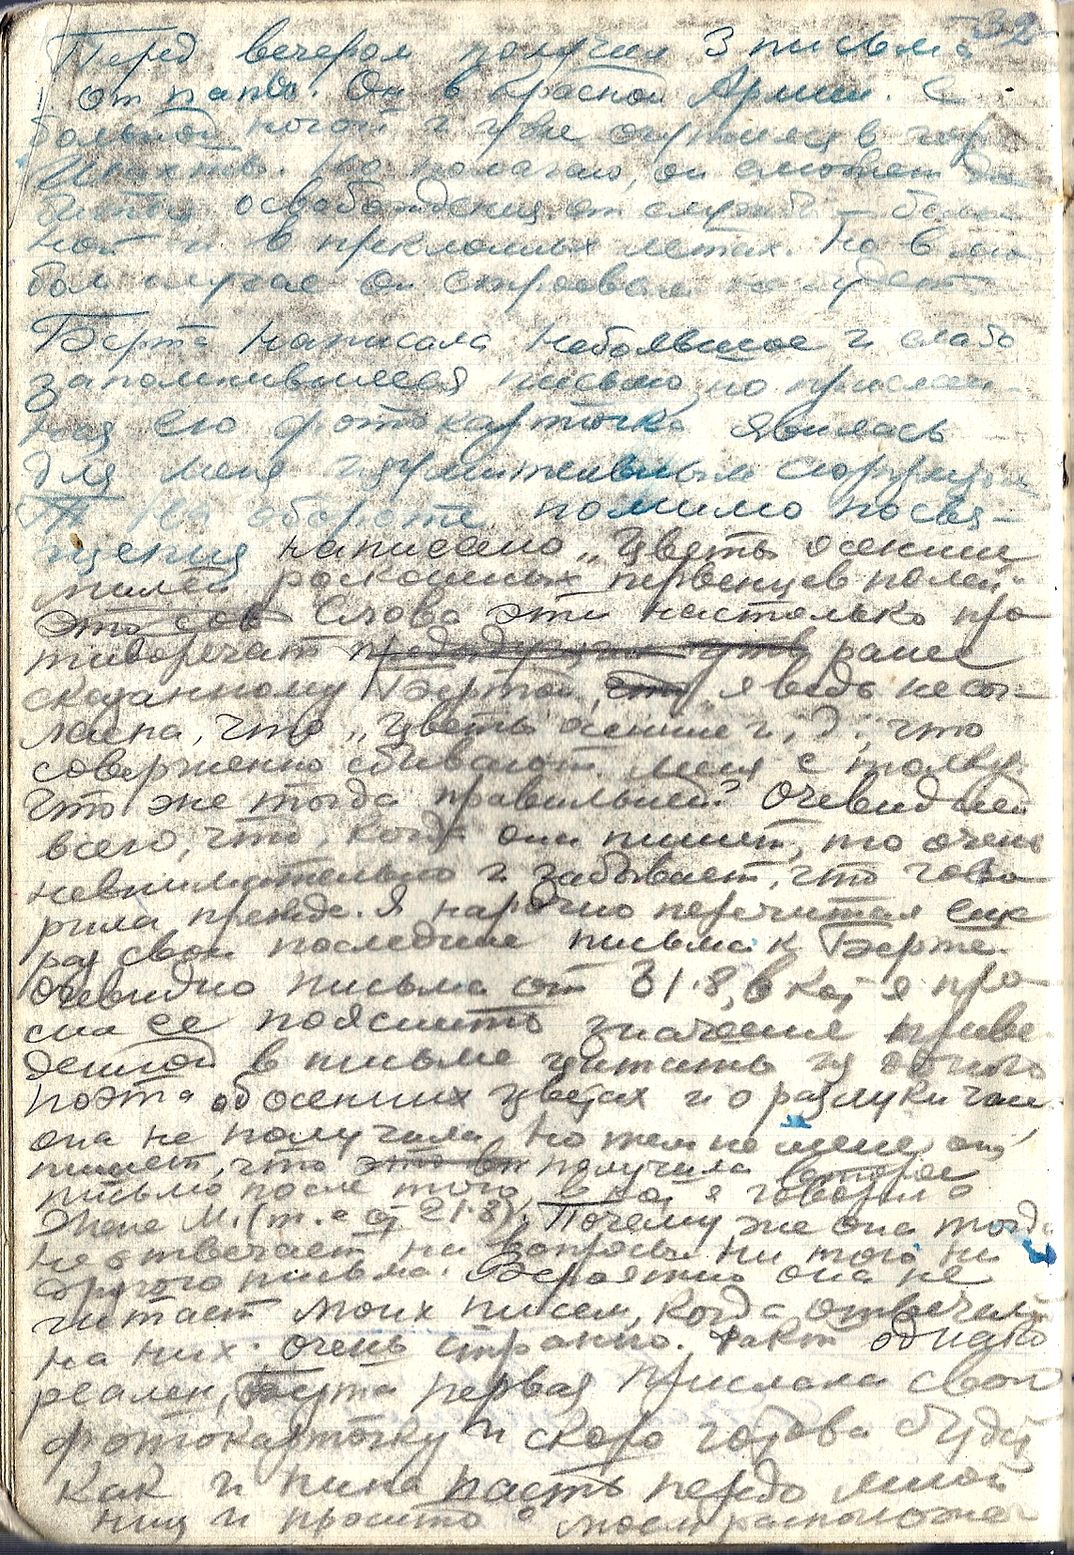 32
Перед вечером получил 3 письма
от папы. Он в Красной Армии. С
больной ногой и
Но полагаю, он сможет до
биться освобождения от службы – боль
ной и в преклонных летах. Но в лю
бом случае он
Берта написала небольшое и слабо
запомнившееся письмо, но прислан-
ная ею фотокарточка явилась
для меня изумительным сюрпризом
На обороте помимо посвя-
щения написано „Цветы осенние
милей роскошных первенцев полей."
Слова эти настолько про-
тиворечат ранее
сказанному Бертой, „я ведь не сог-
ласна, что „цветы осенние и, д", что
совершенно сбивают меня с толку.
Что же тогда правильней? Очевидней
всего, что, когда она пишет, то очень
невнимательно и забывает, что гово-
рила прежде. Я нарочно перечитал еще
раз свои последние письма к Берте.
Очевидно письма от 31.8, в кот я про-
сил ее пояснить значение приве
денной в письме цитаты из одного
поэта об осенних цветах и о разлуки час,
она не получила, но тем не менее она
пишет, что получила второе
письмо после того, в кот я говорил о
Жене М. (т.е от 21.8). Почему же она тогда
не отвечает на вопросы ни того ни
другого письма. Вероятно она не
читает моих писем, когда отвечает
на них. Очень странно. Факт однако
реален, Берта первая прислала свою
фотокарточку и скоро готова будет
как и Нина пасть передо мной
ниц и просить о моем расположен